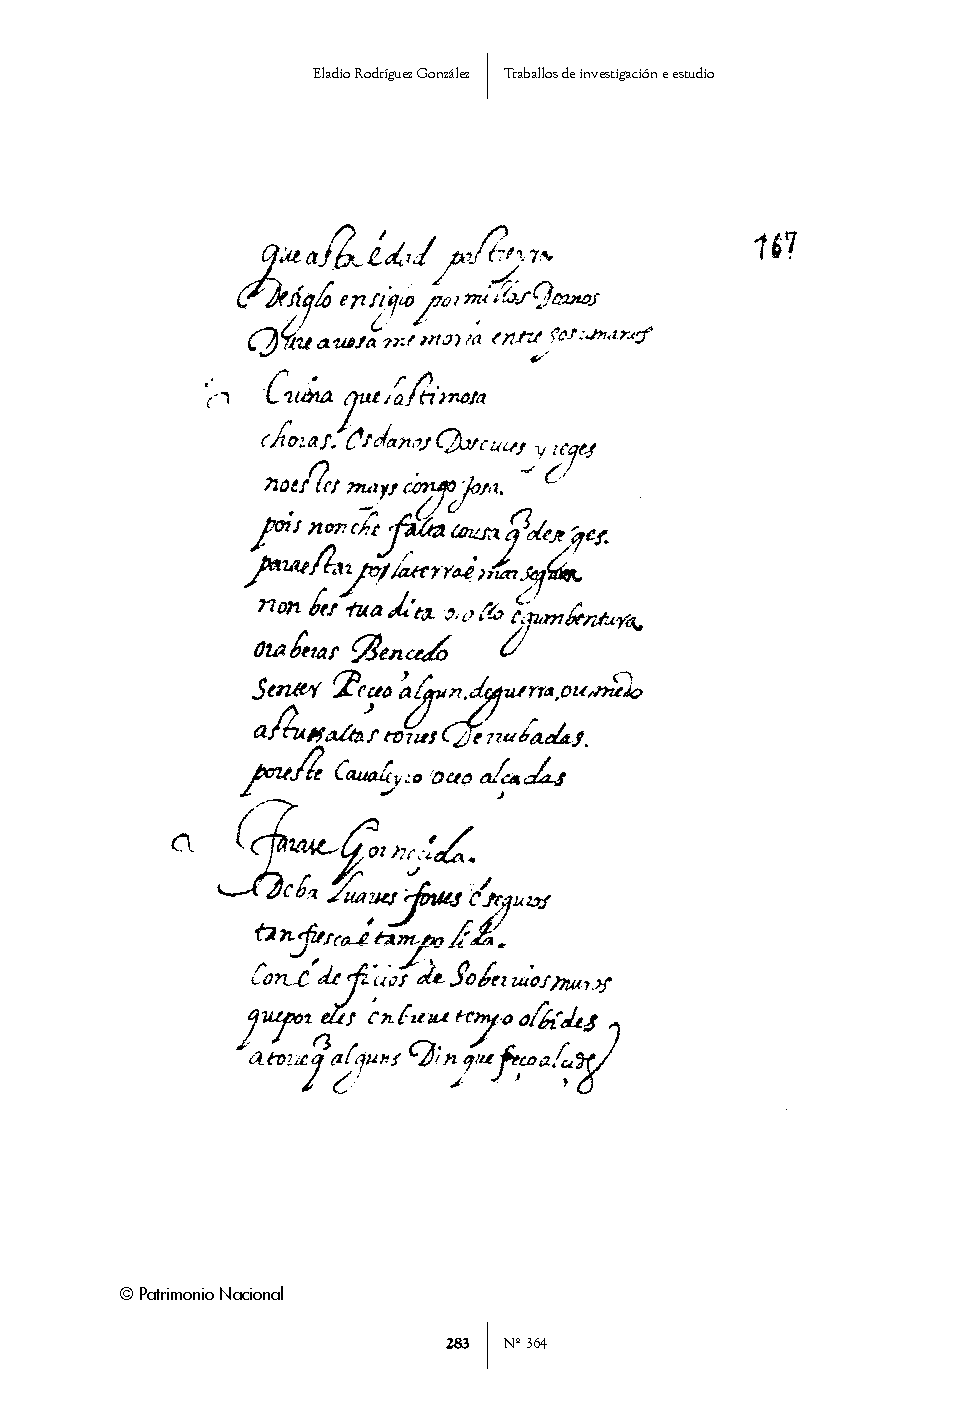 Eladio Rodríguez González
Traballos de investigación e estudio
167
que asta é dad postreyra
De siglo en siglo por millòs De anos
Dure a vosa memoria entre sos umanos
a Cruña que lastimosa
choras. Os danos Dos reues y reges
no estes mays congojosa.
pois non che falta cousa q̃ deseges.
para estar pos la terra é mar segura
non bes tua dita ollo é gumbentura
ora beras Bencedo
Senter Reçeo algun, de guerra, ou medo
as tus altas torres De nubadas.
por este Caualeyro oceo alçadas
a Torre Gorneçida.
De ba luartes fortes é seguros
tan fresca é tam polida.
Con é de ficios de Soberuios muros
que por eles en breue tempo olbides
a torre q̃ alguns Din que feço alçides
© Patrimonio Nacional
283
Nº 364